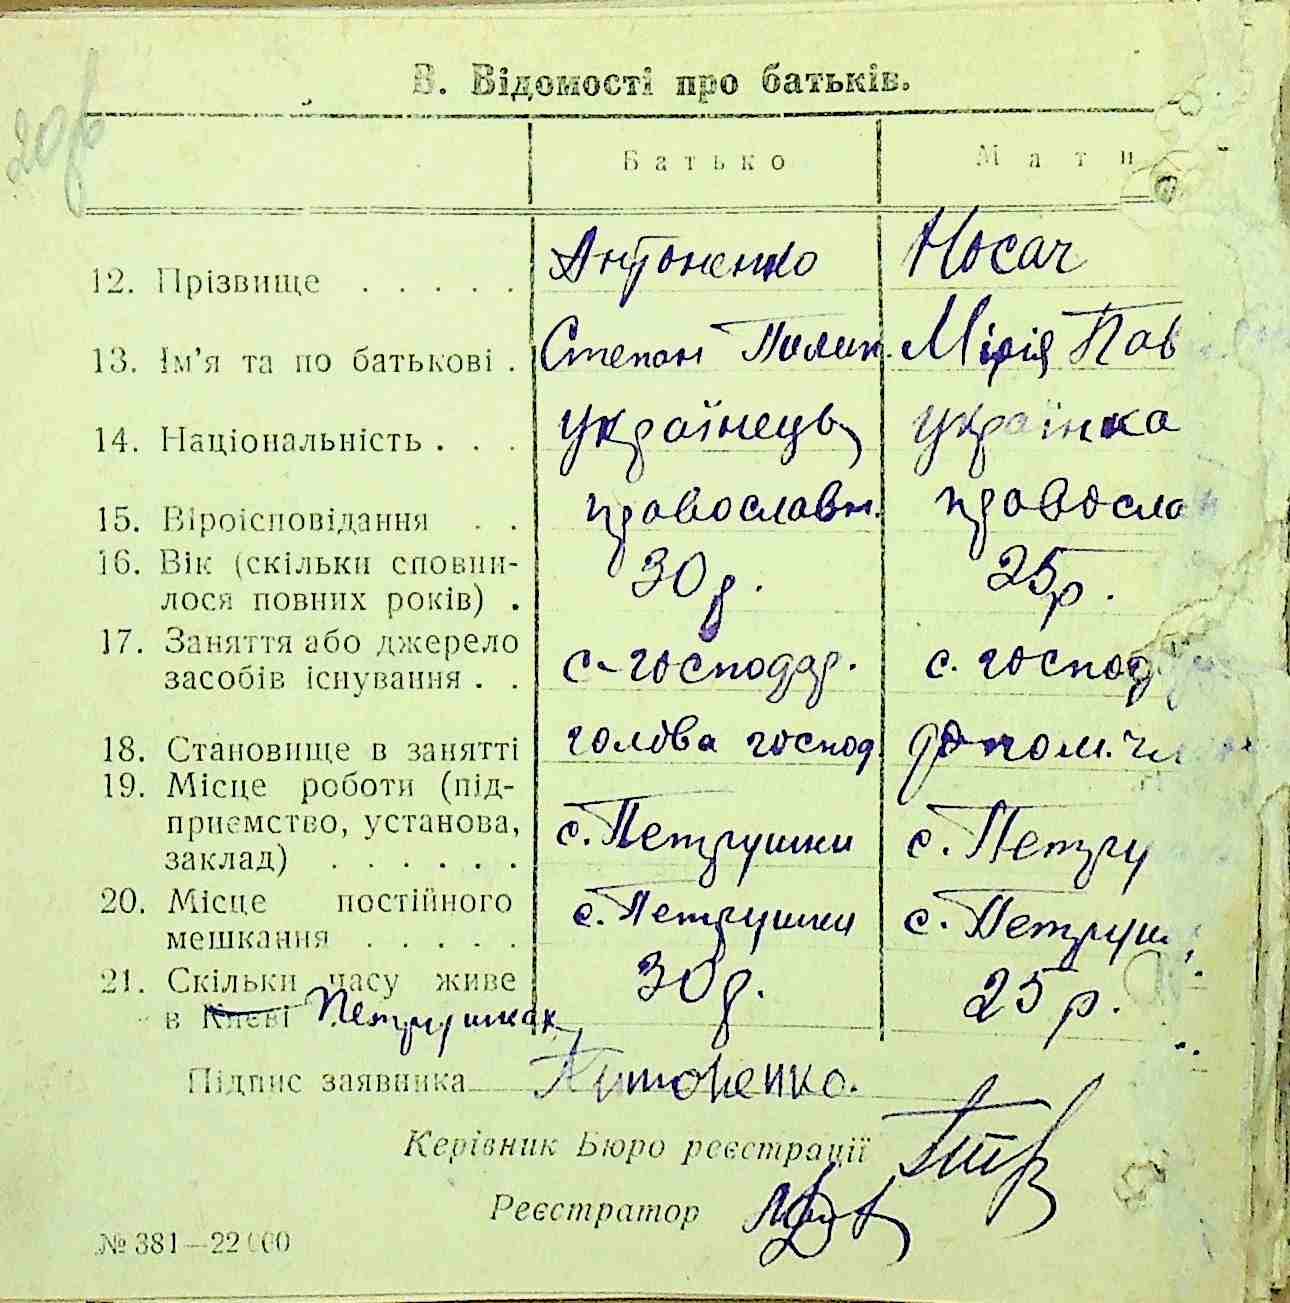 206
В. Відомості про батьків.
Батько Мати
12. Прізвище . . . . . Антоненко Носач
13. Ім'я та по батькові . Степан Полик. Мірія Пав
14. Національність . . . Українець українка
15. Віроісповідання . . православн. правосла
16. Вік (скільки сповни-
лося повних років) . 30 р. 25 р.
17. Заняття або джерело
засобів існування . . с-господар. с. господ
18. Становище в занятті голова господ. допом. чл
19. Місце роботи (під-
приємство, установа,
заклад) . . . . . . с. Петрушки с. Петру
20. Місце постійного
мешкання . . . . . с. Петрушки с. Петруш
21. Скільки часу живе 30 р. 25 р.
в Києві Петрушках
Підпис заявника Антоненко.
Керівник Бюро реєстрації
Реєстратор
№ 381—22000